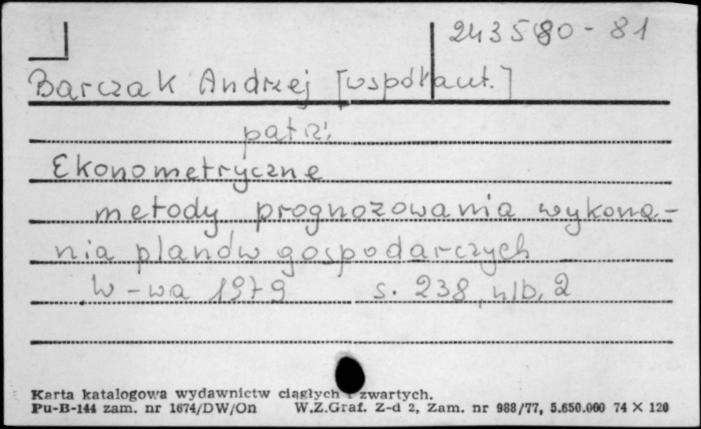 243580-81
Barczak Andrzej [współaut.]
patrz:
Ekonometryczne
metody prognozowania wykona-
nia planów gospodarczych
W-wa 1979 s. 238, nlb. 2
Karta katalogowa wydawnictw ciągłych i zwartych.
Pu-B-144 zam. nr 1674/DW/On W.Z.Graf. Z-d 2, Zam. nr 988/77, 5.650.000 74 × 120